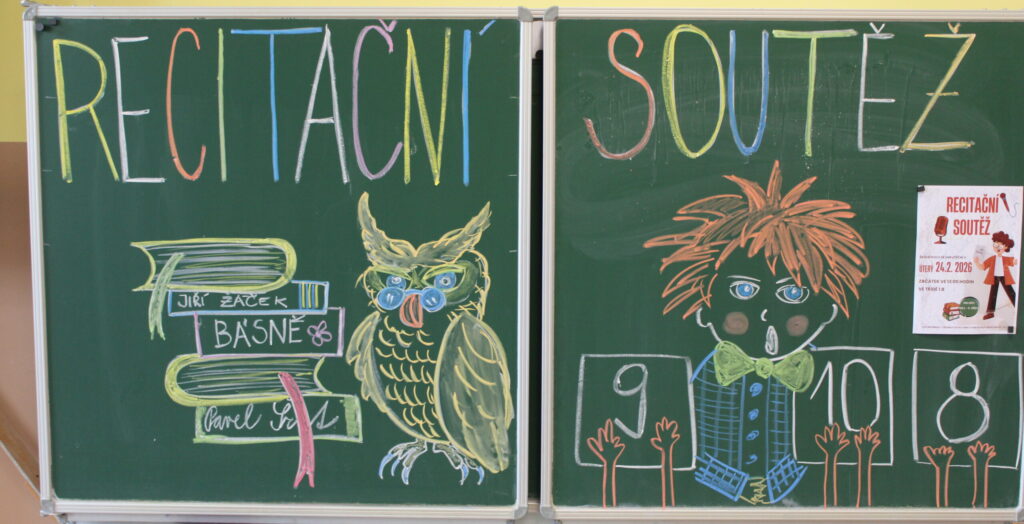 RECITAČNÍ SOUTĚŽ
JIŘÍ ŽÁČEK
BÁSNĚ
Pavel
9 10 8
RECITAČNÍ
SOUTĚŽ
ÚTERÝ 24.2. 2026
ZAČÁTEK VE SEDM HODIN
VE TŘÍDĚ 1.B